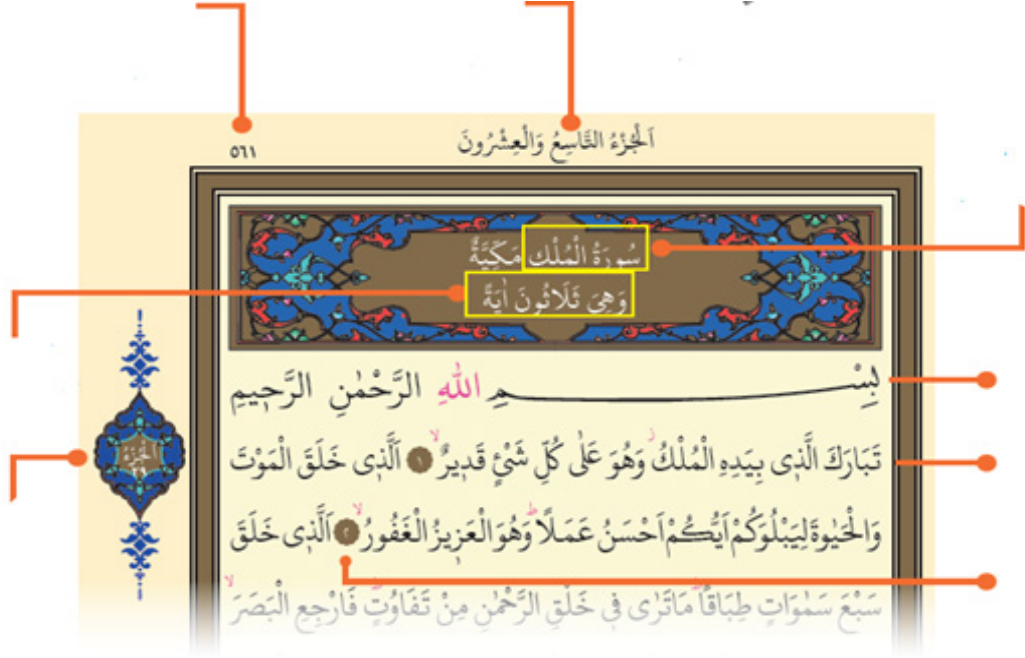 اَلْجُزْءُ التَّاسِعُ وَالْعِشْرُونَ
٥٦١
سُورَةُ الْمُلْكِ مَكِّيَّةٌ
وَهِيَ ثَلَاثُونَ اٰيَةً
بِسْــــــــمِ اللّٰهِ الرَّحْمٰنِ الرَّح۪يمِ
تَبَارَكَ الَّذ۪ي بِيَدِهِ الْمُلْكُۘ وَهُوَ عَلٰى كُلِّ شَيْءٍ قَد۪يرٌۙ ١ اَلَّذ۪ي خَلَقَ الْمَوْتَ
وَالْحَيٰوةَ لِيَبْلُوَكُمْ اَيُّكُمْ اَحْسَنُ عَمَلًاۜ وَهُوَ الْعَز۪يزُ الْغَفُورُۙ ٢ اَلَّذ۪ي خَلَقَ
سَبْعَ سَمٰوَاتٍ طِبَاقًاۜ مَا تَرٰى ف۪ي خَلْقِ الرَّحْمٰنِ مِنْ تَفَاوُتٍۜ فَارْجِعِ الْبَصَرَۙ
اَلْجُزْءُ